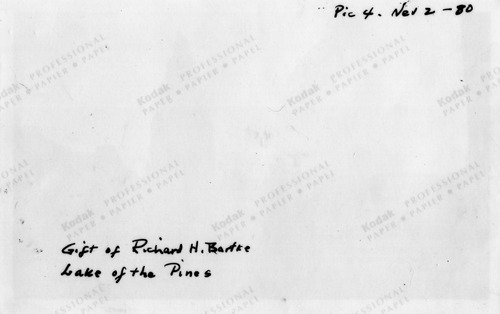 Pic 4. Nev 2-80
Kodak PROFESSIONAL PAPER ★ PAPIER ★ PAPEL
Gift of Richard H. Bartke
Lake of the Pines